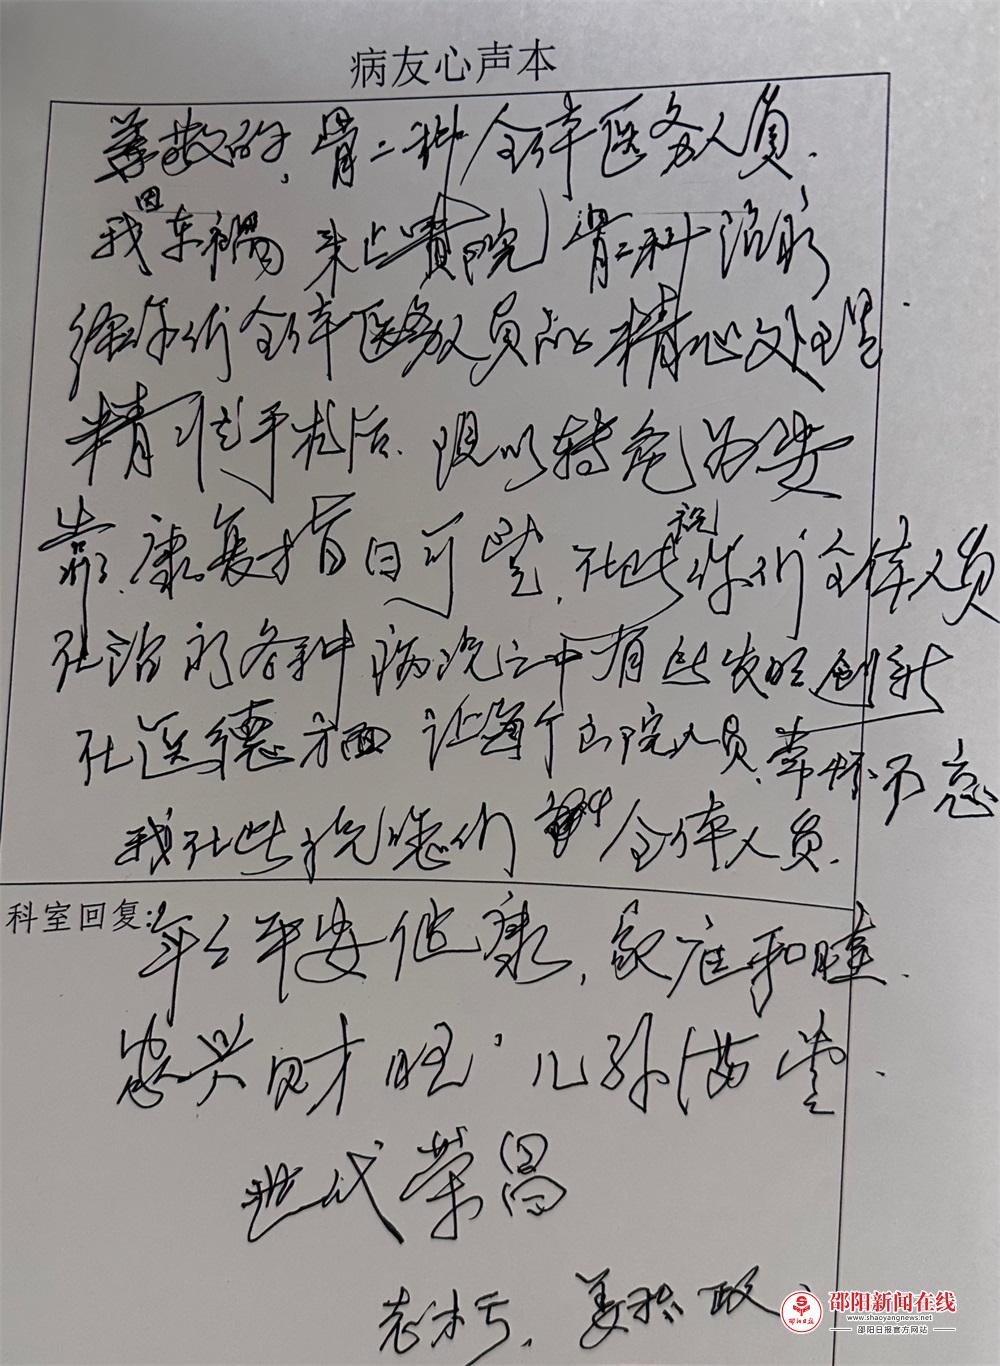 病友心声本
尊敬的,骨二科全体医务人员.
我因车祸来上贵院骨二科治疗
经你们全体医务人员的精心处理
精手术后.现以转危为安
康复指日可望,在此祝你们全体人员
在治疗各种病况之中有些发明创新
在医德方面让每个出院人员.常怀不忘
我在此祝愿你们全体人员.
科室回复:
年年平安健康,家庭和睦.
家兴财旺,儿孙满堂.
世代荣昌
邵阳新闻在线
www.shaoyangnews.net
邵阳日报官方网站
邵阳日报